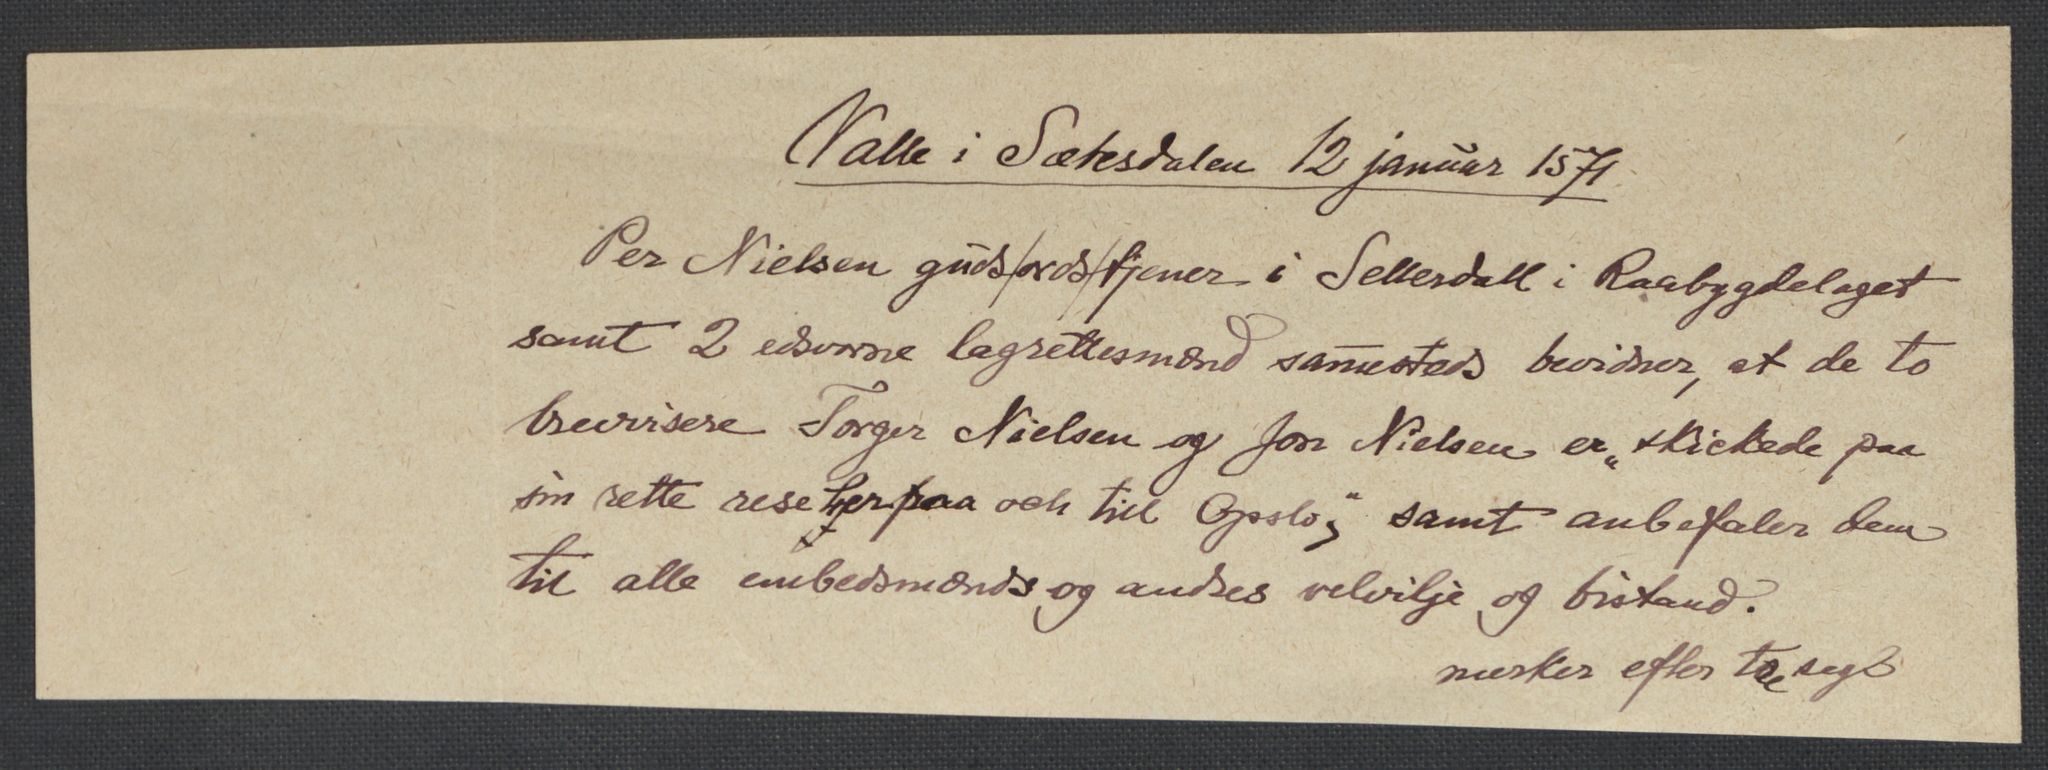 Valle i Sætesdalen 12 januar 1571
Per Nielsen guds/ords/tjener i Settersdall i Raabygdelaget
samt 2 edsvorne lagrettesmænd sammesteds bevidner, at de to
brevvisere Torger Nielsen og Jon Nielsen er „skickede paa
sin rette rese herpaa och till Opslo„ samt anbefaler dem
til alle embedsmænds og andres velvilje og bistand.
merker efter to segl